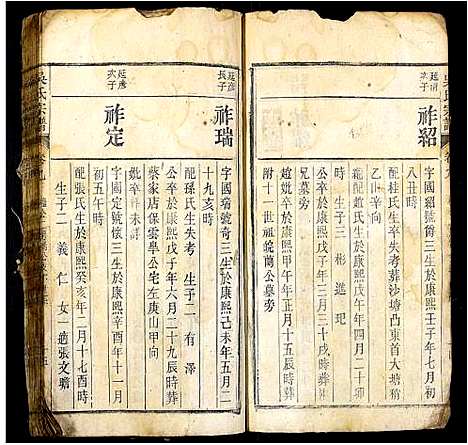 祚紹
字國紹號爵三生於康熙壬子年七月初
八丑時
配桂氏生卒失考葬沙塘凸東首大塘稍
乙山辛向
繼配趙氏生於康熙戊午年四月二十
時 生子三 彬 進 玘
公卒於康熙戊子年三月二十戌時葬
兄墓旁
趙妣卒於康熙甲午年正月十五辰時葬
附十一世祖皖蘭公墓旁
延彥
長子
祚瑞
字國瑞號奇三生於康熙己未年五月二
十九亥時
配孫氏生失考 生子二 有 澤
公卒於康熙戊子年六月二十九辰時葬
蔡家店保雲學公宅左庚山甲向
妣卒葬未詳
延彥
次子
祚定
字國定號懷三生於康熙辛酉年十一月
初五午時
配張氏生於康熙癸亥年二月十七酉時
生子二 義 仁 女一適張文瞻
吳氏宗譜